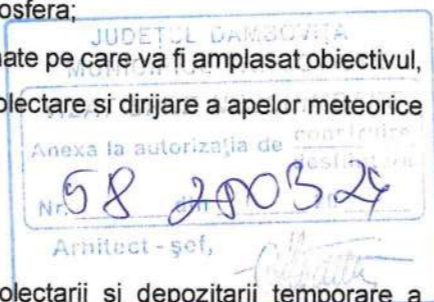 osfera;
JUDEŢUL DÂMBOVIŢA
nate pe care va fi amplasat obiectivul,
olectare si dirijare a apelor meteorice
Anexa la autorizaţia de construire
desfiinţare
Nr. 58 din 200324
Arhitect - şef,
olectarii si depozitarii temporare a